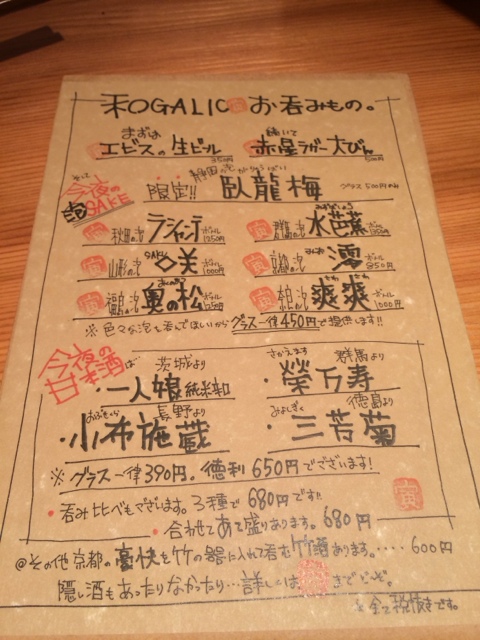 禾OGALIC お呑みもの。
まずは エビスの生ビール 350円
続いて 赤星ラガー大びん 500円
今夜の泡SAKE
静岡の泡
限定!! 臥龍梅 グラス500円
秋田の泡 ラシャンテ ボトル1250円
群馬の泡 水芭蕉
山形の泡 咲 ボトル1000円
京都の泡 澪 ボトル850円
福島の泡 奥の松 ボトル1250円
爽爽 ボトル1000円
※色々な泡を呑んでほしいからグラス一律450円で提供します!!
今夜の日本酒は
茨城より ・一人娘 純米
群馬より さかえます ・榮万寿
長野より おぶせくら ・小布施蔵
徳島より みよしぎく ・三芳菊
※グラス一律390円。徳利650円でございます!
・呑み比べもございます。3種で680円です!!
・合わせてあて盛りあります。680円
@その他京都の豪快を竹の器に入れて呑む竹酒あります。‥‥600円
隠し酒もあったりなかったり…詳しくは きでどーぞ。
全て税抜きです。